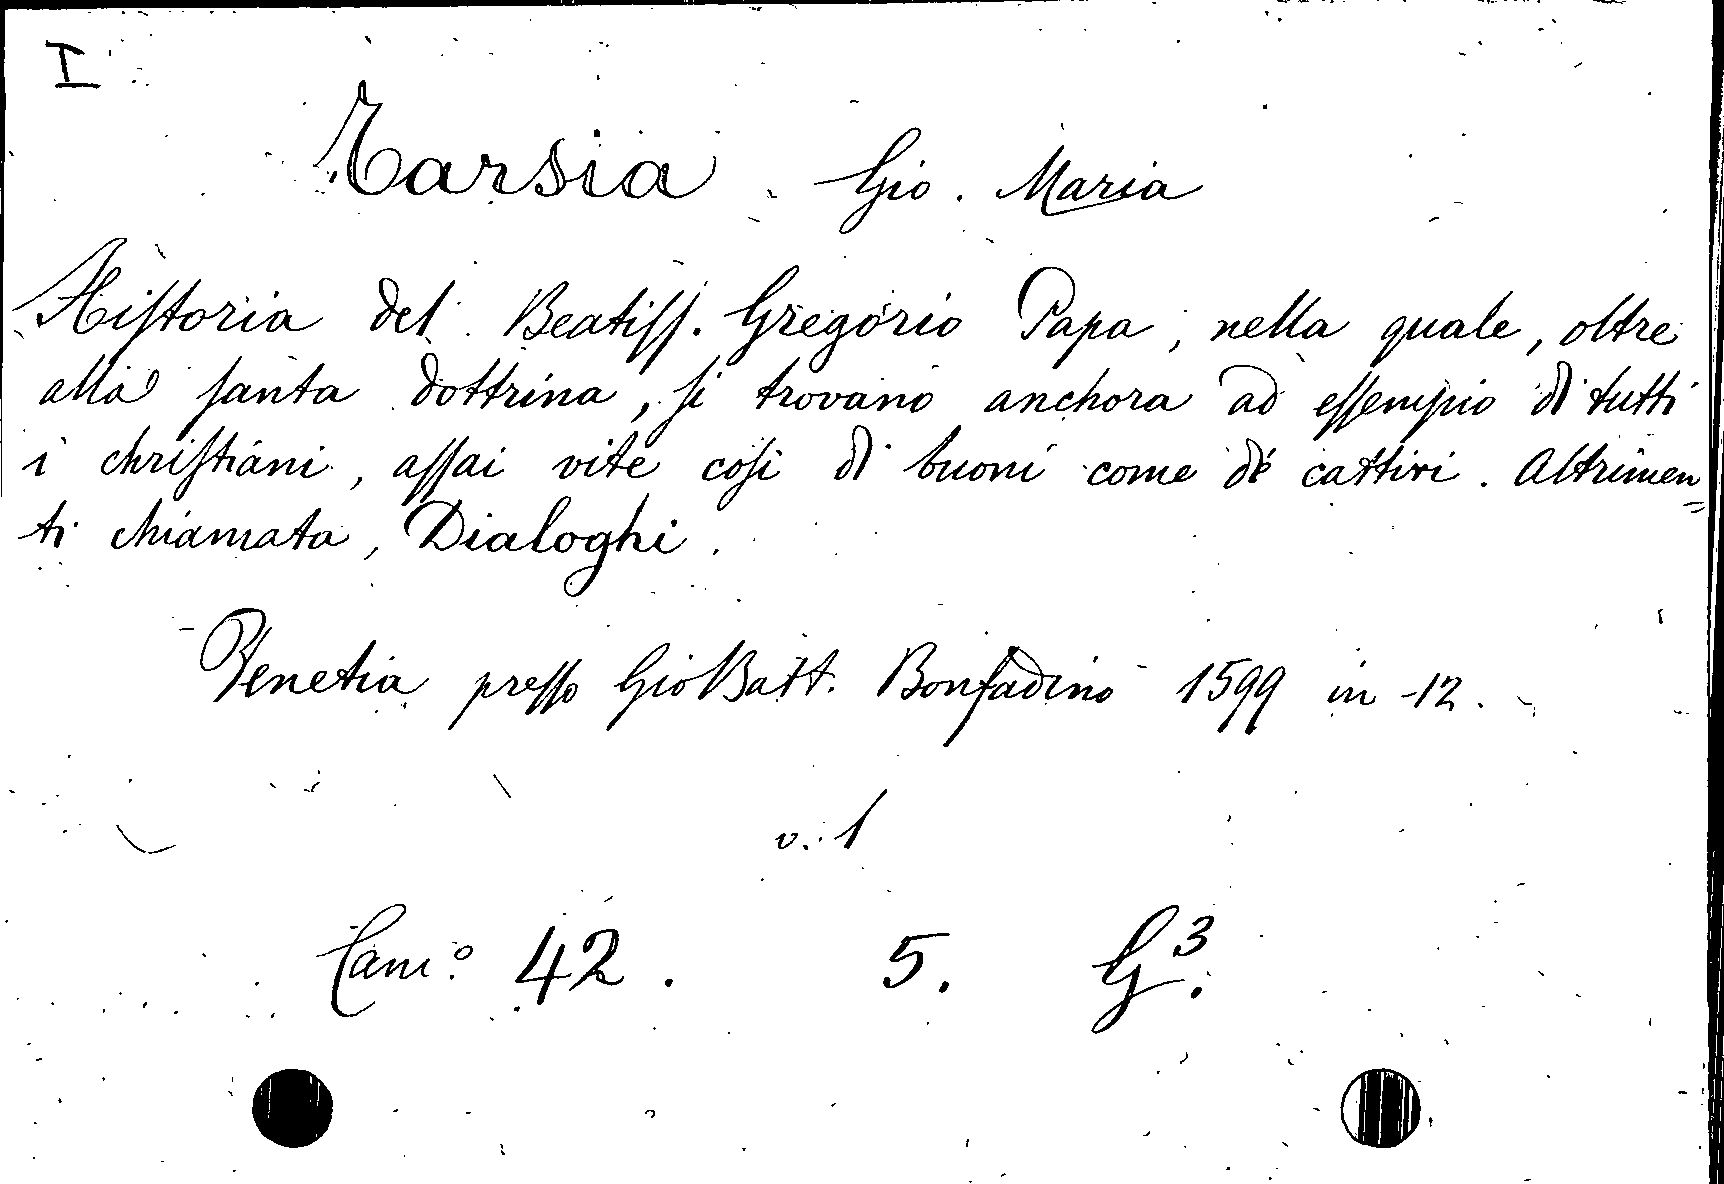 I
Tarsia Gio. Maria
Hiſtoria del Beatiſſ. Gregorio Papa, nella quale, oltre
alla ſanta dottrina, ſi trovano anchora ad eſſempio di tutti
i chriſtiani, aſſai vite coſi di buoni come dé cattivi. Altrimen=
ti chiamata, Dialoghi.
Venetia preſſo Gio Batt. Bonfadino 1599 in -12.
v. 1
Cam.º 42. 5. G³.